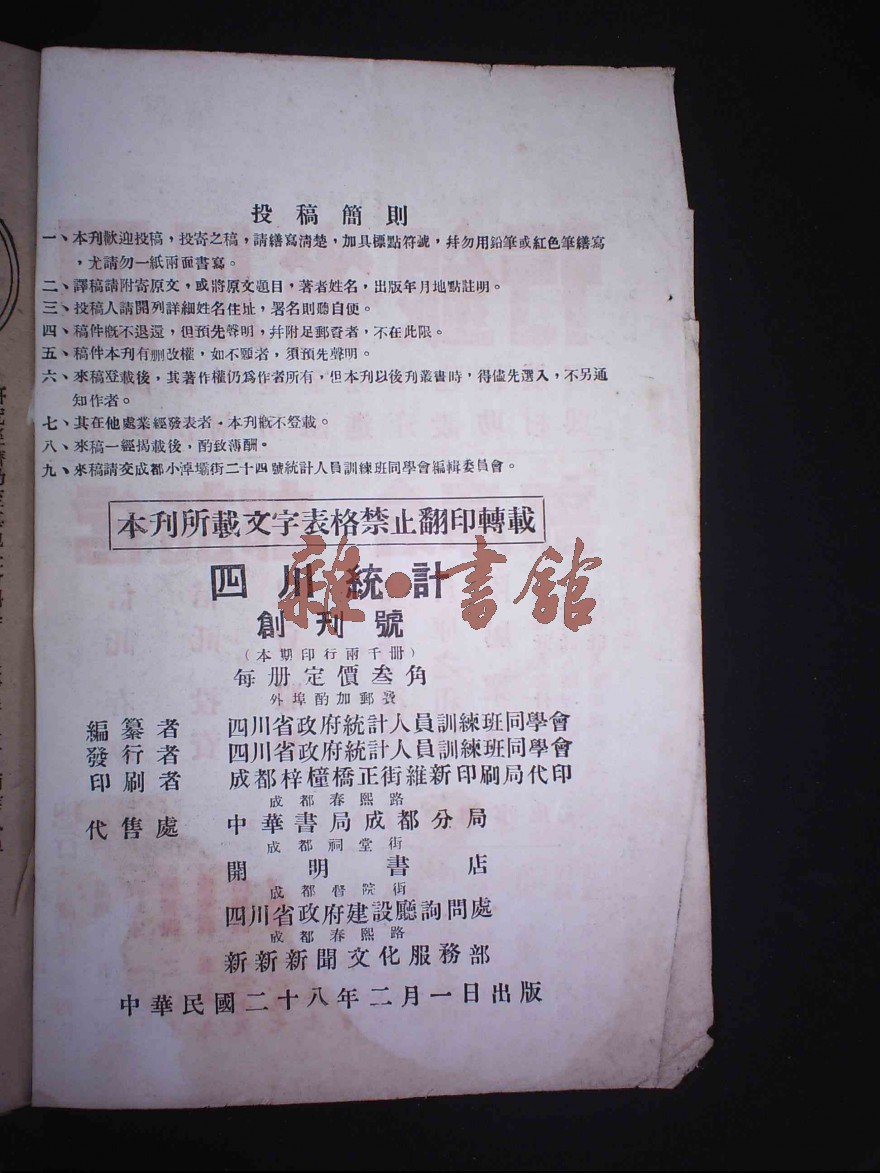 投稿簡則
一、本刊歡迎投稿，投寄之稿，請繕寫清楚，加具標點符號，幷勿用鉛筆或紅色筆繕寫
，尤請勿一紙兩面書寫。
二、譯稿請附寄原文，或將原文題目，著者姓名，出版年月地點註明。
三、投稿人請開列詳細姓名住址，署名則聽自便。
四、稿件概不退還，但預先聲明，幷附足郵資者，不在此限。
五、稿件本刊有刪改權，如不願者，須預先聲明。
六、來稿登載後，其著作權仍爲作者所有，但本刊以後刊叢書時，得儘先選入，不另通
知作者。
七、其在他處業經發表者，本刊概不登載。
八、來稿一經揭載後，酌致薄酬。
九、來稿請交成都小淖壩街二十四號統計人員訓練班同學會編輯委員會。
本刊所載文字表格禁止翻印轉載
四川統計
創刊號
（本期印行兩千册）
每册定價叁角
外埠酌加郵費
編纂者 四川省政府統計人員訓練班同學會
發行者 四川省政府統計人員訓練班同學會
印刷者 成都梓橦橋正街維新印刷局代印
成都春熙路
代售處 中華書局成都分局
成都祠堂街
開明書店
成都督院街
四川省政府建設廳詢問處
成都春熙路
新新新聞文化服務部
中華民國二十八年二月一日出版
雜·書館